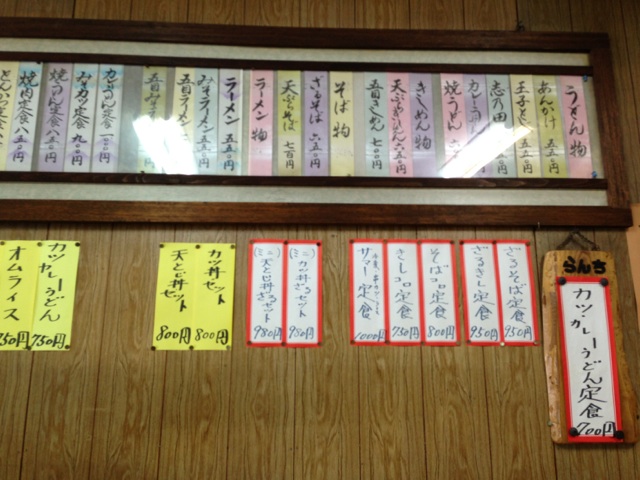 うどん物
あんかけ 五五〇
玉子とじ 五五〇
志乃田
カレーうどん
焼うどん 六
きしめん物
天ぷらきしめん 六五〇
五目きしめん 七〇〇
そば物
ざるそば 六五〇
天ぷらそば 七百円
ラーメン物
ラーメン 五五〇
みそラーメン 五五〇
五目ラーメン
五目みそ
カレーうどん定食 八〇〇円
みそカツ定食 九〇〇円
焼うどん定食 八五〇円
焼肉定食 八五〇円
とんかつ定食 八五〇円
らんち
カツ・カレーうどん定食 700円
ざるそば定食 950円
ざるきし定食 950円
そばコロ定食 800円
きしコロ定食 750円
サマー定食 1000円
(ミニ)カツ丼ざるセット 980円
(ミニ)天とじ丼ざるセット 980円
カツ丼セット 800円
天とじ丼セット 800円
カツカレーうどん 750円
オムライス 750円